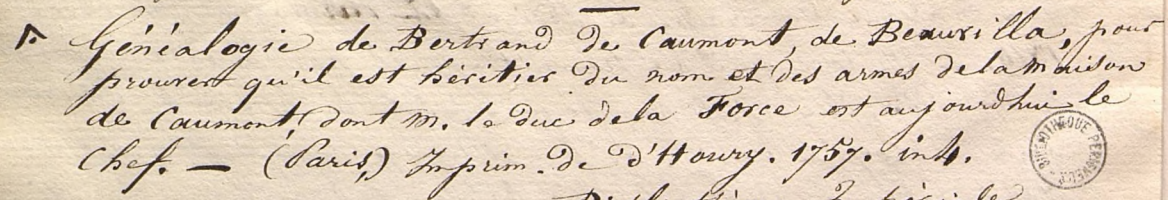 Généalogie de Bertrand de Caumont, de Beauxilla, pour
prouver qu'il est héritier du nom et des armes de la maison
de Caumont, dont m. le duc de la Force est aujourdhui le
Chef. — (Paris,) Imprim. de d'Houry. 1757. in 4.
BIBLIOTHEQUE PERIGUEUX